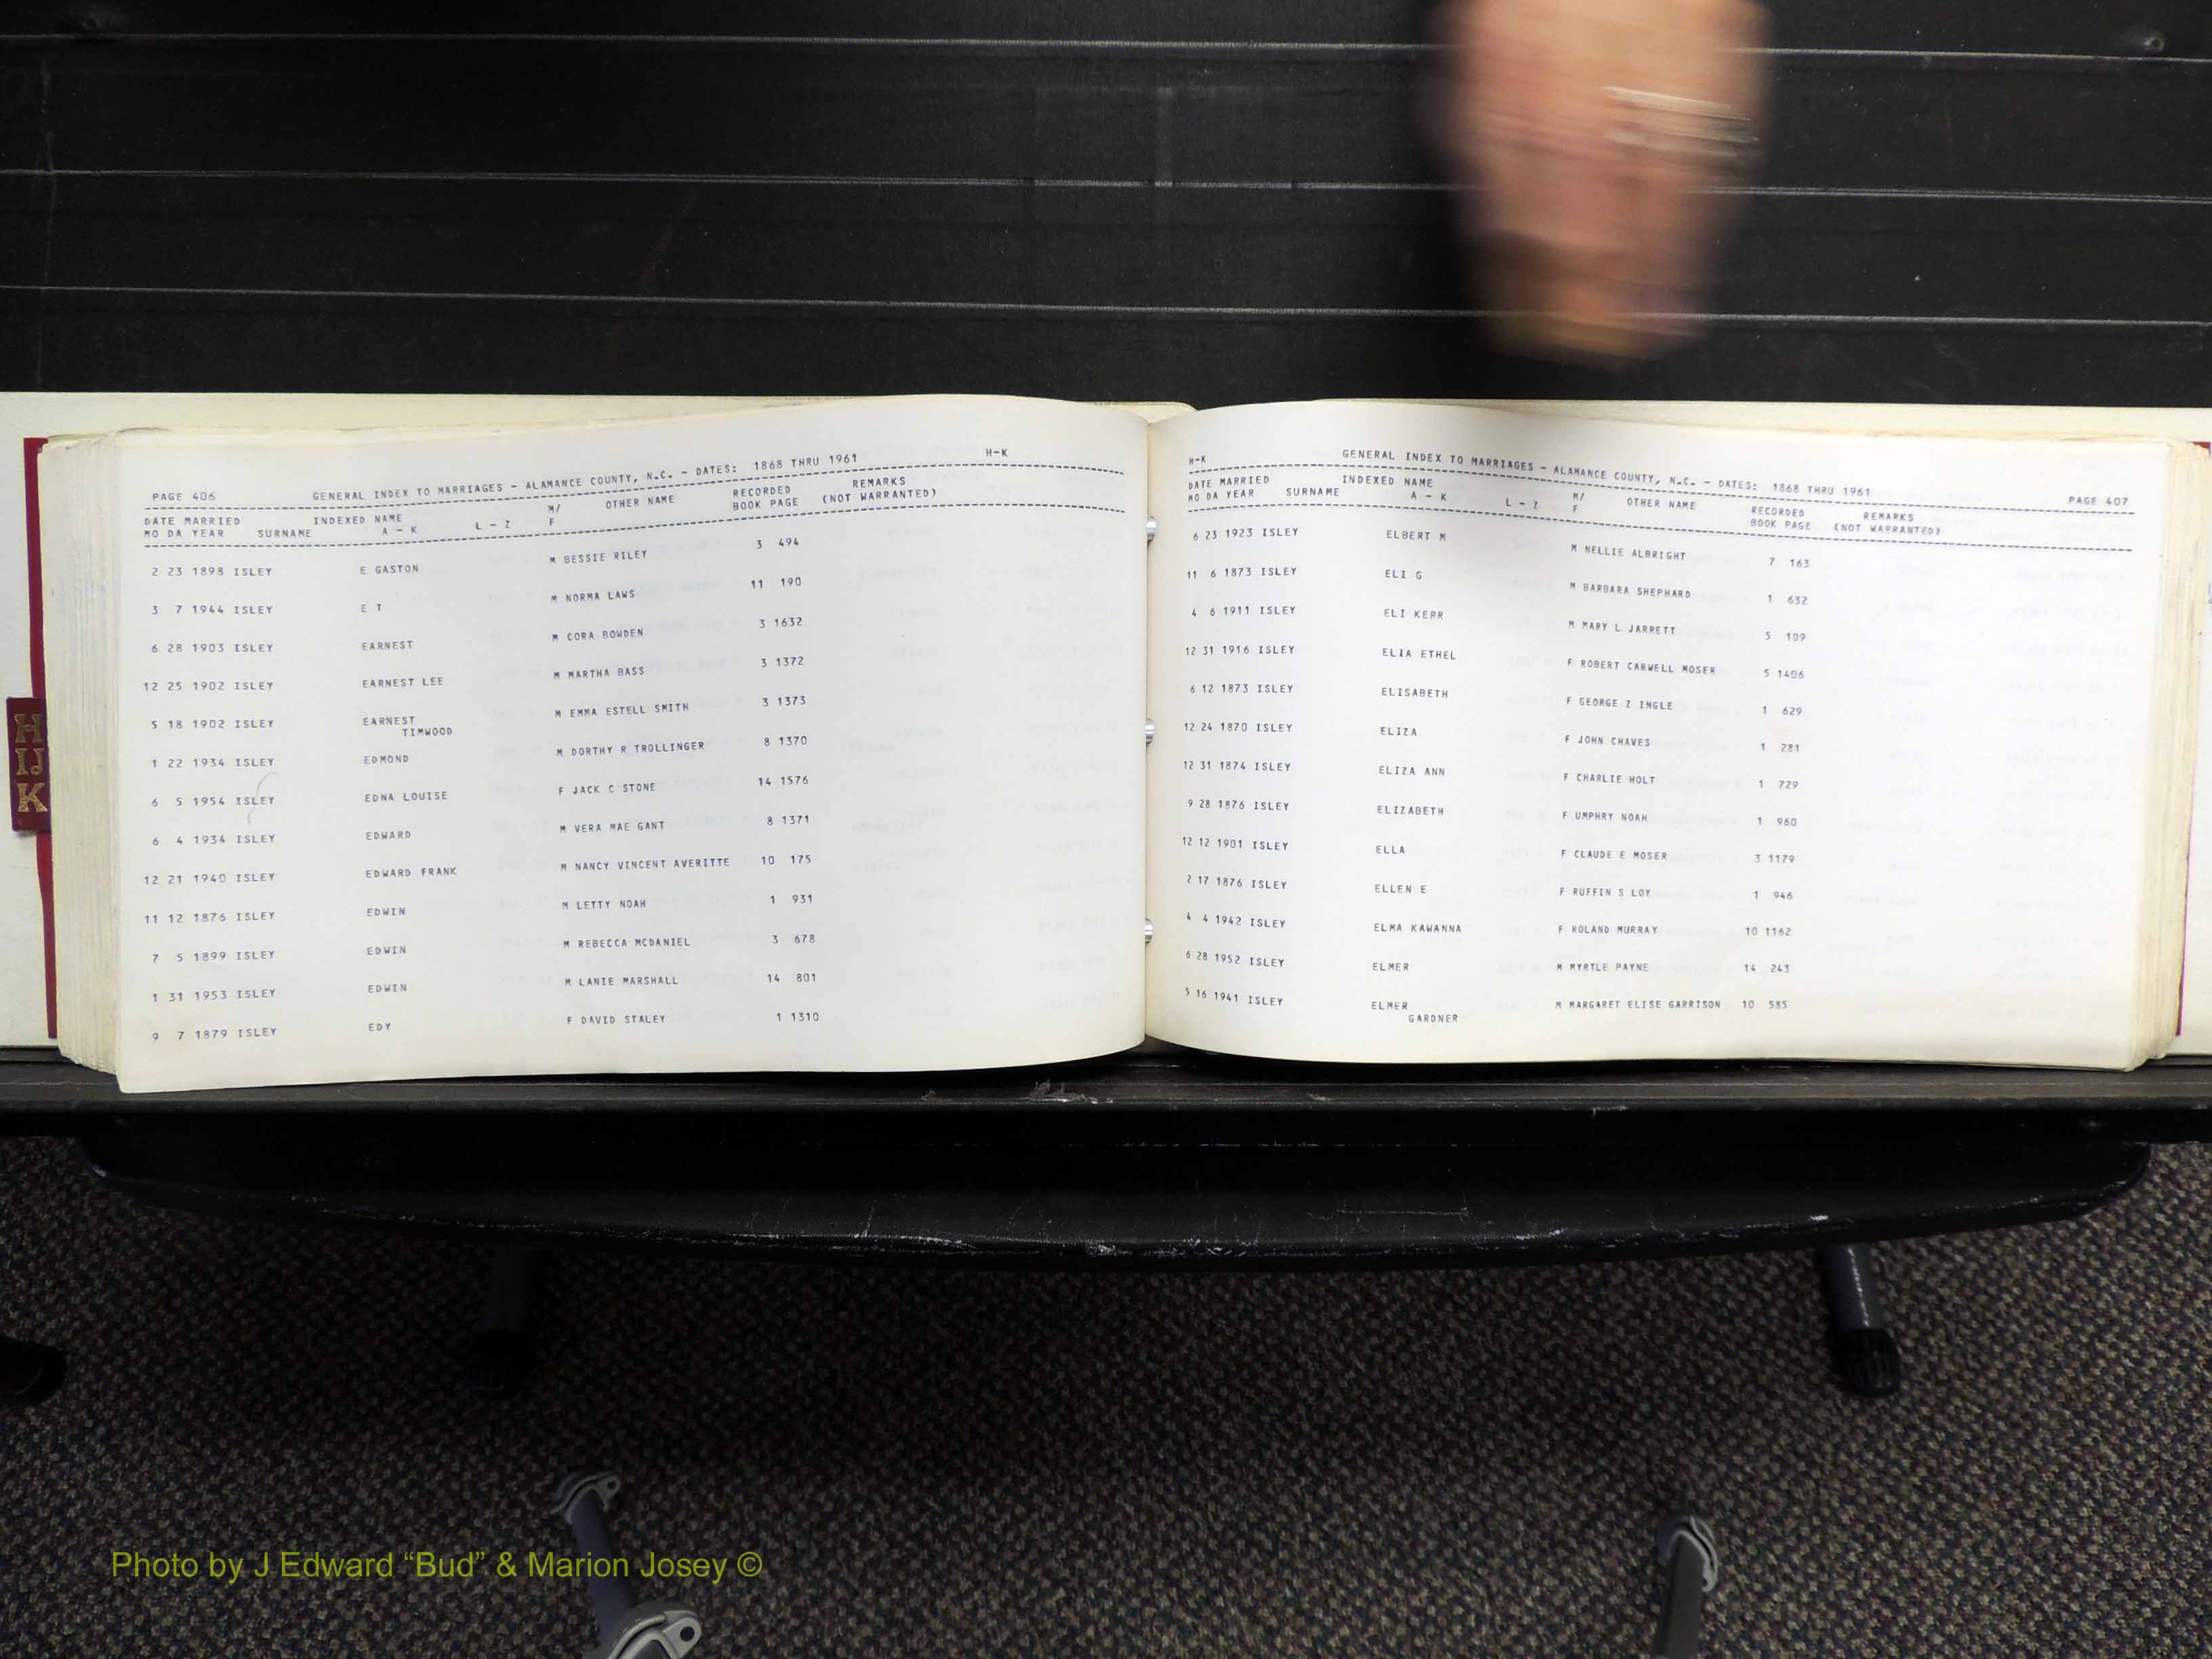 PAGE 406 GENERAL INDEX TO MARRIAGES - ALAMANCE COUNTY, N.C. - DATES: 1868 THRU 1961 H-K
DATE MARRIED INDEXED NAME M/ OTHER NAME RECORDED REMARKS
MO DA YEAR SURNAME A - K L - Z F BOOK PAGE (NOT WARRANTED)
2 23 1898 ISLEY E GASTON M BESSIE RILEY 3 494
3 7 1944 ISLEY E T M NORMA LAWS 11 190
6 28 1903 ISLEY EARNEST M CORA BOWDEN 3 1632
12 25 1902 ISLEY EARNEST LEE M MARTHA BASS 3 1372
5 18 1902 ISLEY EARNEST M EMMA ESTELL SMITH 3 1373
TIMWOOD
1 22 1934 ISLEY EDMOND M DORTHY R TROLLINGER 8 1370
6 5 1954 ISLEY EDNA LOUISE F JACK C STONE 14 1576
6 4 1934 ISLEY EDWARD M VERA MAE GANT 8 1371
12 21 1940 ISLEY EDWARD FRANK M NANCY VINCENT AVERITTE 10 175
11 12 1876 ISLEY EDWIN M LETTY NOAH 1 931
7 5 1899 ISLEY EDWIN M REBECCA MCDANIEL 3 678
1 31 1953 ISLEY EDWIN M LANIE MARSHALL 14 801
9 7 1879 ISLEY EDY F DAVID STALEY 1 1310
H-K GENERAL INDEX TO MARRIAGES - ALAMANCE COUNTY, N.C. - DATES: 1868 THRU 1961 PAGE 407
DATE MARRIED INDEXED NAME M/ OTHER NAME RECORDED REMARKS
MO DA YEAR SURNAME A - K L - Z F BOOK PAGE (NOT WARRANTED)
6 23 1923 ISLEY ELBERT M M NELLIE ALBRIGHT 7 163
11 6 1873 ISLEY ELI G M BARBARA SHEPHARD 1 632
4 6 1911 ISLEY ELI KERR M MARY L JARRETT 5 109
12 31 1916 ISLEY ELIA ETHEL F ROBERT CARWELL MOSER 5 1406
6 12 1873 ISLEY ELISABETH F GEORGE Z INGLE 1 629
12 24 1870 ISLEY ELIZA F JOHN CHAVES 1 281
12 31 1874 ISLEY ELIZA ANN F CHARLIE HOLT 1 729
9 28 1876 ISLEY ELIZABETH F UMPHRY NOAH 1 960
12 12 1901 ISLEY ELLA F CLAUDE E MOSER 3 1179
2 17 1876 ISLEY ELLEN E F RUFFIN S LOY 1 946
4 4 1942 ISLEY ELMA KAWANNA F ROLAND MURRAY 10 1162
6 28 1952 ISLEY ELMER M MYRTLE PAYNE 14 243
5 16 1941 ISLEY ELMER M MARGARET ELISE GARRISON 10 585
GARDNER
H
IJ
K
Photo by J Edward “Bud” & Marion Josey ©